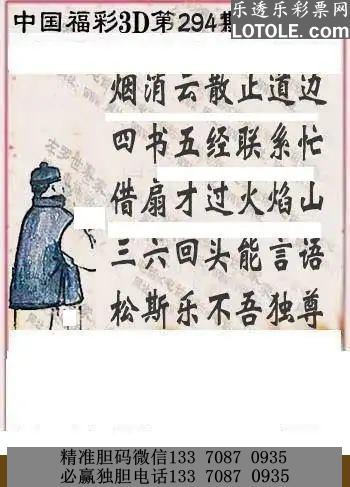 中国福彩3D第294期
乐透乐彩票网
LOTOLE.COM
烟消云散止道边
四书五经联系忙
借扇才过火焰山
三六回头能言语
松斯乐不吾独尊
精准胆码微信133 7087 0935
必赢独胆电话133 7087 0935